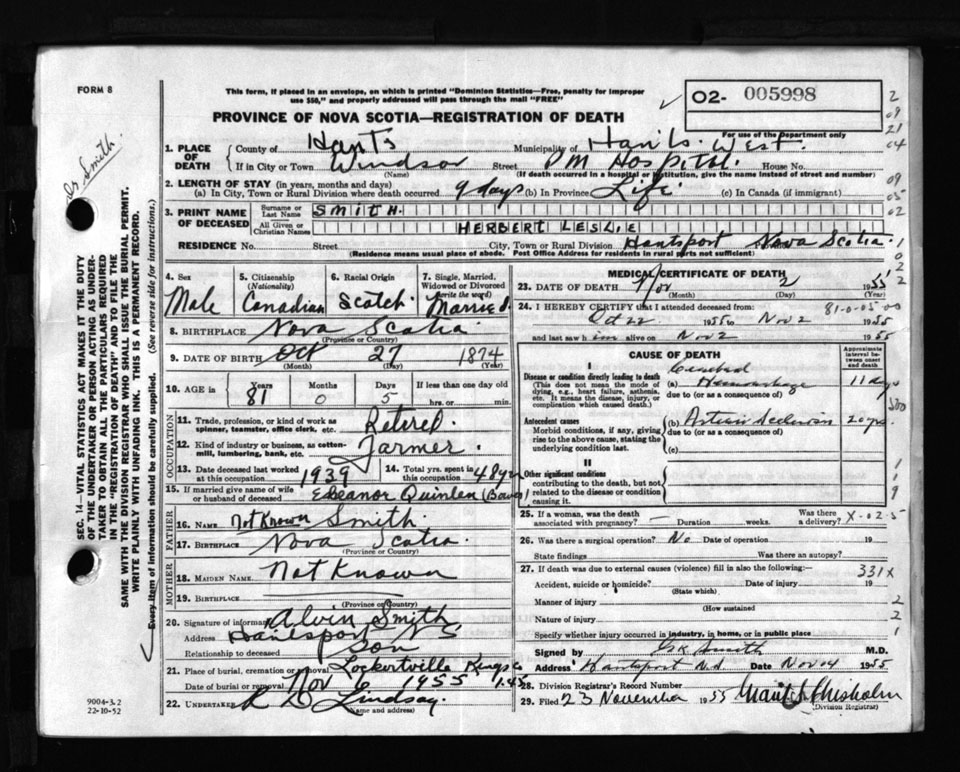 FORM 8
This form, if placed in an envelope, on which is printed "Dominion Statistics—Free, penalty for improper
use $50," and properly addressed will pass through the mail "FREE"
PROVINCE OF NOVA SCOTIA—REGISTRATION OF DEATH
02- 005998
For use of the Department only
G. Smith.
1. PLACE OF DEATH
County of Hants Municipality of Hants West.
If in City or Town Windsor Street P M Hospital. House No.
(Name) (If death occurred in a hospital or institution, give the name instead of street and number)
2. LENGTH OF STAY (in years, months and days)
(a) In City, Town or Rural Division where death occurred 9 days (b) In Province Life. (c) In Canada (if immigrant)
3. PRINT NAME OF DECEASED
Surname or Last Name SMITH.
All Given or Christian Names HERBERT LESLIE
RESIDENCE No. Street City, Town or Rural Division Hantsport Nova Scotia.
(Residence means usual place of abode. Post Office Address for residents in rural parts not sufficient)
4. Sex Male
5. Citizenship (Nationality) Canadian
6. Racial Origin Scotch.
7. Single, Married, Widowed or Divorced (write the word) Married.
8. BIRTHPLACE Nova Scotia
(Province or Country)
9. DATE OF BIRTH Oct 27 1874
(Month) (Day) (Year)
10. AGE in Years 81 Months 0 Days 5 If less than one day old hrs. or min.
OCCUPATION
11. Trade, profession, or kind of work as spinner, teamster, office clerk, etc. Retired.
12. Kind of industry or business, as cotton-mill, lumbering, bank, etc. Farmer.
13. Date deceased last worked at this occupation 1939
14. Total yrs. spent in this occupation 48 yrs
15. If married give name of wife or husband of deceased Eleanor Quinlen
FATHER
16. Name Not Known Smith.
17. Birthplace Nova Scotia.
(Province or Country)
MOTHER
18. Maiden Name Not Known
19. Birthplace
(Province or Country)
20. Signature of informant Alvin Smith
Address Hantsport N S.
Relationship to deceased Son
21. Place of burial, cremation or removal Lockertville Kings
Date of burial or removal Nov 6 1955 1.45
22. Undertaker Lindsay
(Name and address)
MEDICAL CERTIFICATE OF DEATH
23. DATE OF DEATH Nov 2 1955
(Month) (Day) (Year)
24. I HEREBY CERTIFY that I attended deceased from: 81-0-05-00
Oct 22 1955 to Nov 2 1955
and last saw him alive on Nov 2 1955
CAUSE OF DEATH
Approximate interval between onset and death
I
Disease or condition directly leading to death
(This does not mean the mode of dying, e.g., heart failure, asthenia, etc. It means the disease, injury, or complication which caused death.)
(a) Cerebral Hemorrhage 11 days
due to (or as a consequence of)
Antecedent causes
Morbid conditions, if any, giving rise to the above cause, stating the underlying condition last.
(b) 20 yrs
due to (or as a consequence of)
(c)
II
Other significant conditions
contributing to the death, but not related to the disease or condition causing it.
25. If a woman, was the death associated with pregnancy? — Duration weeks. Was there a delivery? X-02-5
26. Was there a surgical operation? No Date of operation 19
State findings Was there an autopsy?
27. If death was due to external causes (violence) fill in also the following: 331X
Accident, suicide or homicide? Date of injury 19
(State which)
Manner of injury
(How sustained)
Nature of injury
Specify whether injury occurred in industry, in home, or in public place
Signed by GK Smith M.D.
Address Hantsport N.S. Date Nov 04 1955
28. Division Registrar's Record Number
29. Filed 23 November 1955 Chisholm
(Division Registrar)
SEC. 14—VITAL STATISTICS ACT MAKES IT THE DUTY
OF THE UNDERTAKER OR PERSON ACTING AS UNDER-
TAKER TO OBTAIN ALL THE PARTICULARS REQUIRED
IN THE "REGISTRATION OF DEATH" AND TO FILE THE
SAME WITH THE DIVISION REGISTRAR WHO SHALL ISSUE THE BURIAL PERMIT.
WRITE PLAINLY WITH UNFADING INK. THIS IS A PERMANENT RECORD.
Every item of information should be carefully supplied. (See reverse side for instructions.)
9004-3.2
22-10-52